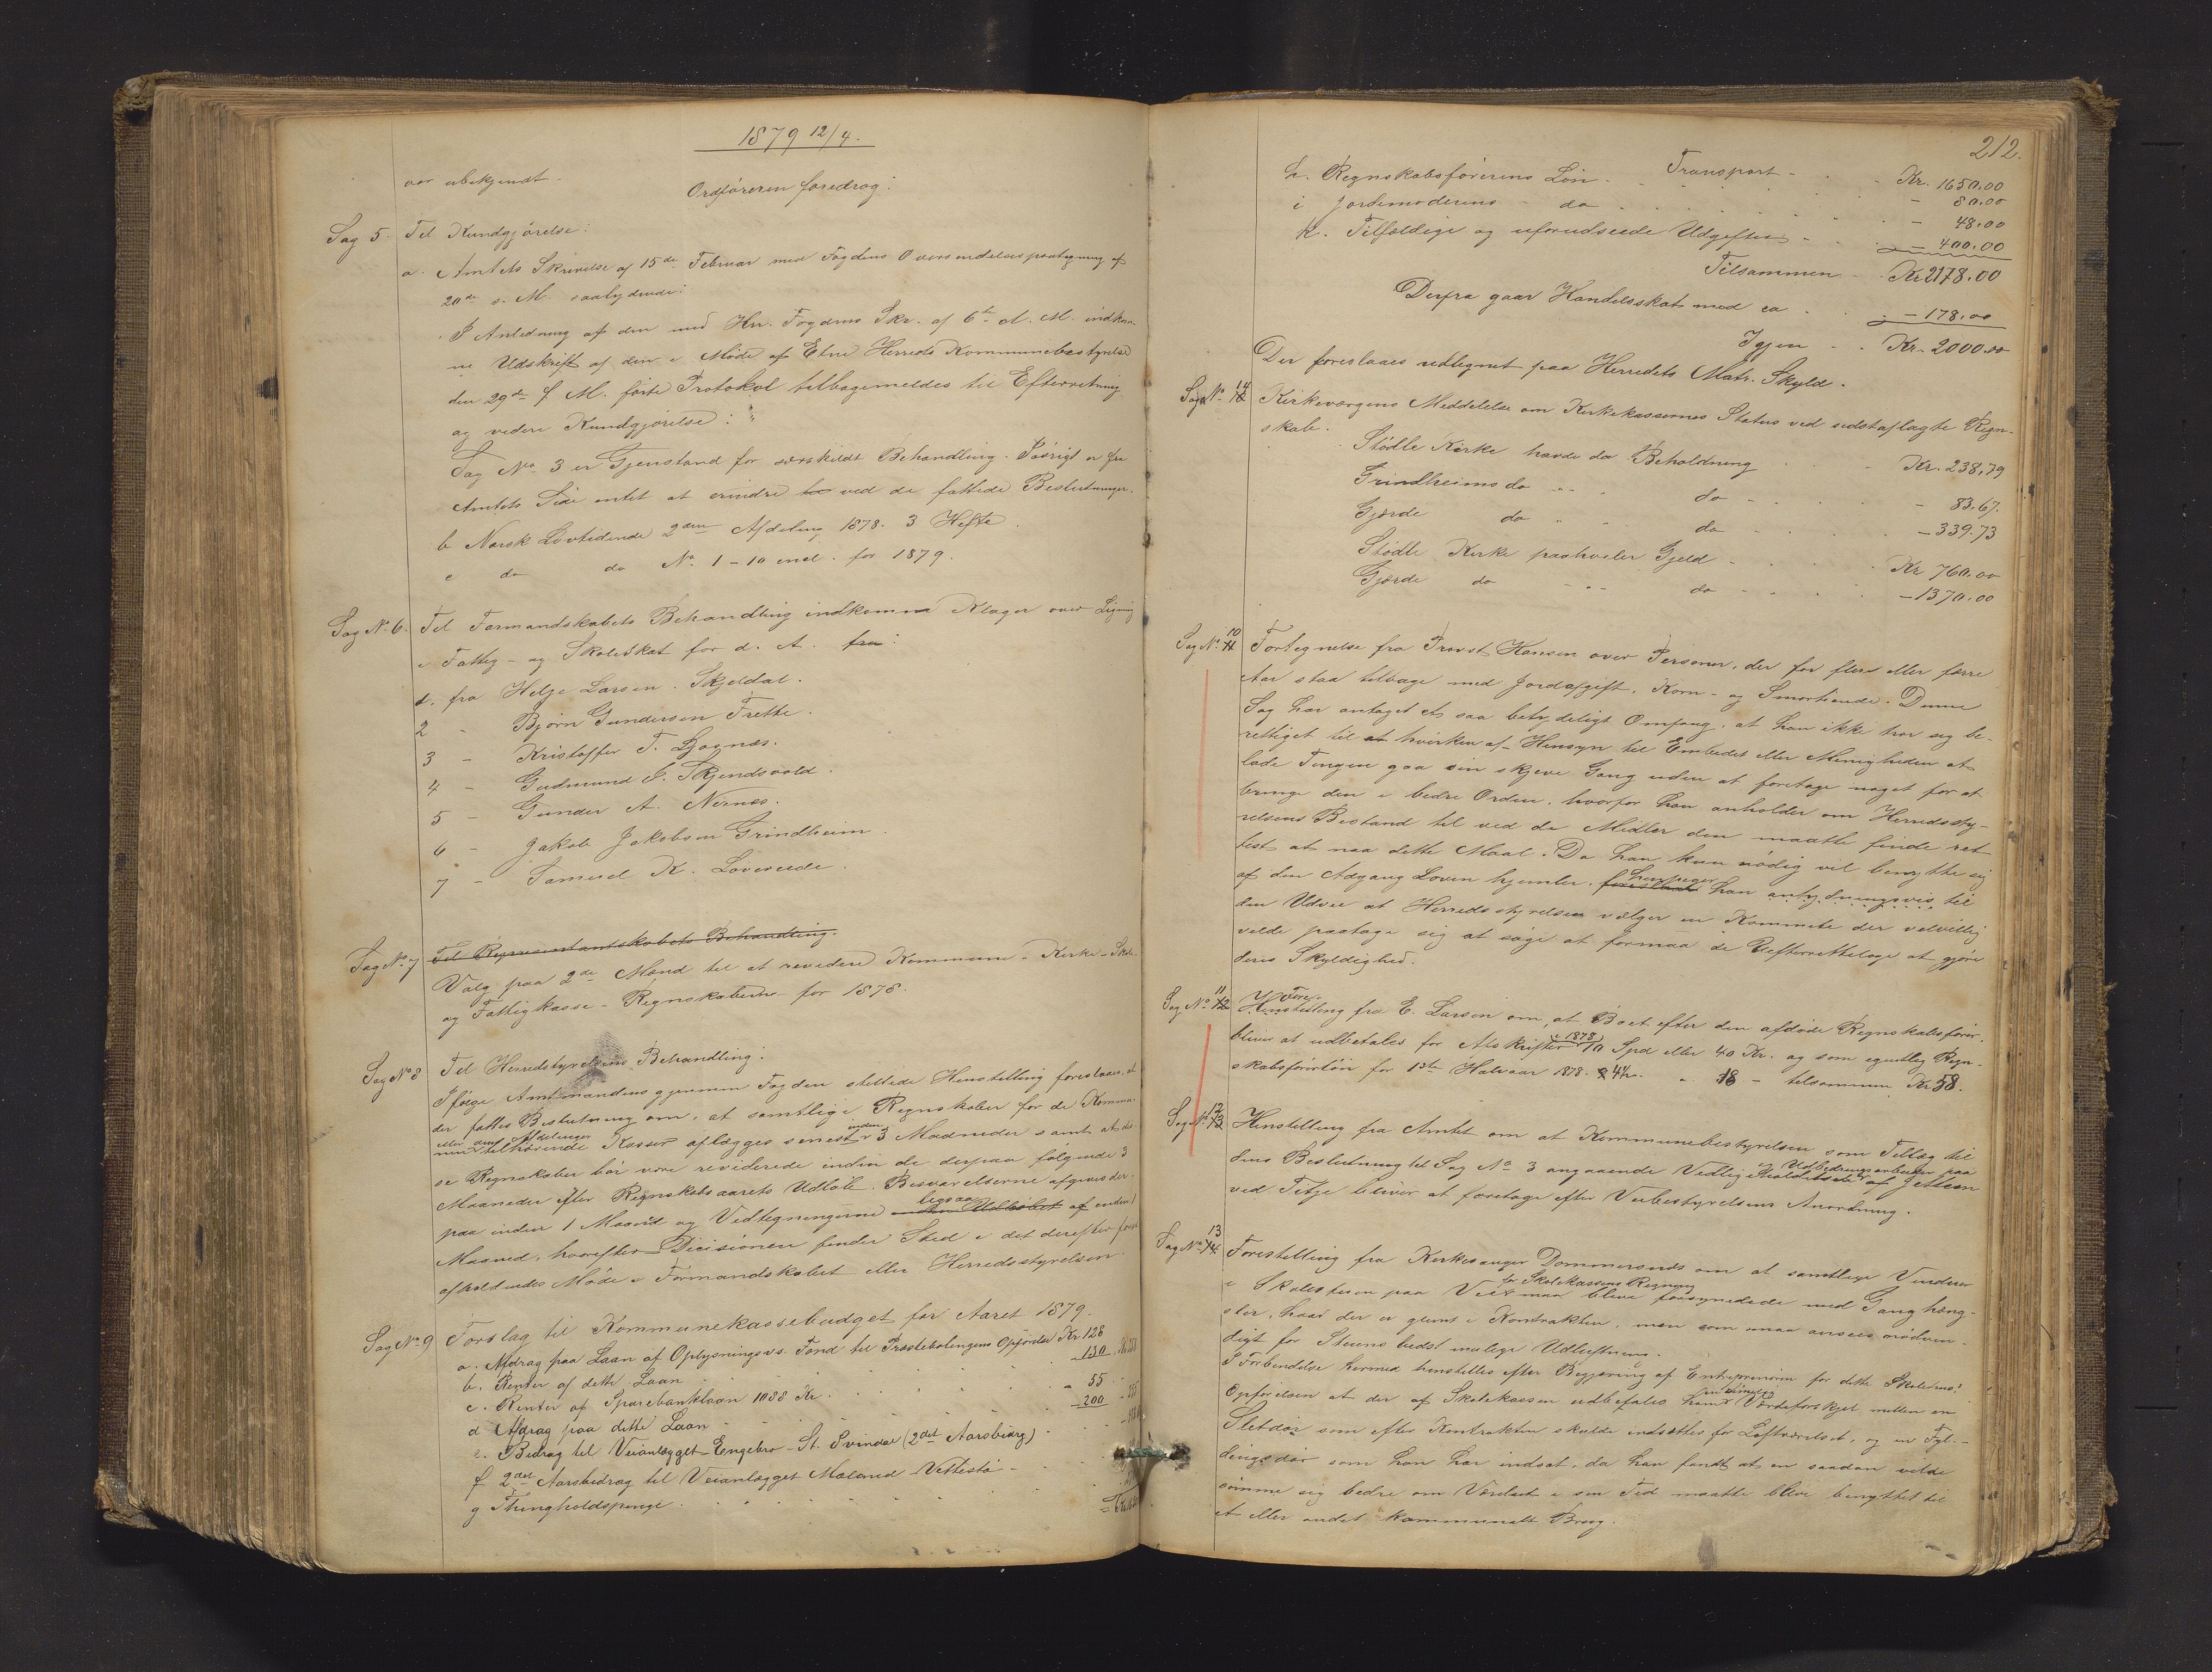 1879 12/4.
var ubekjendt.
Ordføreren foredrog:
Sag 5. Til Kundgjørelse:
a. Amtets Skrivelse af 15de Februar med Fogdens Oversendelsespaategning af
20de s. M. saalydende:
"I Anledning af den med Hr. Fogdens Skr. af 6te d. M. indkom-
ne Udskrift af den i Møde af Etne Herreds Kommunebestyrelse
den 29de f. M. førte Protokol tilbagemeldes til Efterretning
og videre Kundgjørelse:"
Sag No 3 er Gjenstand for særskildt Behandling. Iøvrigt er fra
Amtets Side intet at erindre ved de fattede Beslutninger.
b Norsk Lovtidende 2den Afdeling 1878. 3 Hefte.
c do do No 1-10 incl. for 1879.
Sag No 6. Til Formandskabets Behandling indkomne Klager over Ligning
i Fattig- og Skoleskat for d. A. fra:
1. fra Helge Larsen Skjeldal.
2 - Bjørn Gundersen Frette.
3 - Kristoffer T. Lognæs.
4 - Gudmund S. Skjendsvold.
5 - Gunder A. Nernæs.
6 - Jakob Jakobsen Grindheim.
7 - Samuel K. Lovereide.
Til Repræsentantskabets Behandling.
Sag No 7 Valg paa 2de Mænd til at revidere Kommune- Kirke- Skole-
og Fattigkasse-Regnskaberne for 1878.
Sag No 8 Til Herredstyrelsens Behandling:
Ifølge Amtmandens gjennem Fogden stillede Henstilling foreslaaes, at
der fattes Beslutning om, at samtlige Regnskaber for de Kommu-
eller dens Afdelinger
nen tilhørende Kasser aflægges senest inden 3 Maaneder samt at dis-
se Regnskaber bør være reviderede inden de derpaa følgende 3
Maaneder efter Regnskabsaarets Udløb. Besvarelserne afgives der-
paa inden 1 Maaned og Vedtegningerne ligesaa inden Udløbet af enden 1
Maaned, hvorefter Decisionen finder Sted i det derefter først
afholdendes Møde i Formandskabet eller Herredsstyrelsen.
Sag No 9 Forslag til Kommunekassebudget for Aaret 1879.
a. Afdrag paa Laan af Oplysningsv. Fond til Præstebolingens Opførelse Kr 128
b. Renter af dette Laan - 130
c. Renter af Sparebanklaan 1088 Kr. - 55
d Afdrag paa dette Laan - 200
e. Bidrag til Veianlægget Engebro - St. Svindal (2det Aarsbidrag)
f 2det Aarsbidrag til Veianlægget Mæland - Vettestø -
g Thingholdspenge
212.
Transport - Kr. 1650.00
h. Regnskabsførerens Løn - 80.00
i Jordemoderens do - 48.00
k. Tilfældige og uforudseede Udgifter - 400.00
Tilsammen - Kr 2178.00
Derfra gaar Handelsskat med ca - 178.00
Igjen - Kr. 2000.00
Der foreslaaes udlignet paa Herredets Matr. Skyld.
Sag No 14 Kirkeværgens Meddelelse om Kirkekassernes Status ved sidstaflagte Regn-
skab.
Stødle Kirke havde da Beholdning Kr. 238.79
Grindheims do do - 83.67.
Gjerde do do - 339.73
Stødle Kirke paahviler Gjeld - Kr 760.00
Gjerde do do - 1370.00
Sag No 10 Fortegnelse fra Provst Hansen over Personer, der for flere eller færre
Aar staa tilbage med Jordafgift, Korn- og Smørtiende. Denne
Sag har antaget et saa betydeligt Omfang, at han ikke tror sig be-
rettiget til at hverken af Hensyn til Embedet eller Menigheden at
lade Tingen gaa sin skjeve Gang uden at foretage noget for at
bringe den i bedre Orden, hvorfor han anholder om Herredssty-
relsens Bestand til ved de Midler den maatte finde ret-
test at naa dette Maal. Da han kun nødig vil benytte sig
af den Adgang Loven hjemler, foreslaar henpeger han antydningsvis til
den Udvei at Herredsstyrelsen vælger en Kommite der velvillig
vilde paatage sig at søge at formaa de Uefterrettelige at gjøre
deres Skyldighed.
Sag No 11 Forestilling fra E. Larsen om, at Boet efter den afdøde Regnskabsfører
bliver at udbetales for Afskrifter i 1878 10 Spd eller 40 Kr. og som egentlig Regn-
skabsførerløn for 1ste Halvaar 1878. 4½ " 18 - tilsammen Kr 58.
Sag No 12 Henstilling fra Amtet om at Kommunebestyrelsen som Tillæg til
dens Beslutning til Sag No 3 angaaende Vedligeholdelse og Udbedringsarbeider paa
ved Titje bliver at foretage efter Veibestyrelsens Anordning.
Sag No 13 Forestilling fra Kirkesanger Dommersnes om at samtlige Vinduer
i Skolestuen paa Vei maa blive for Skolekassens Regning forsynedede med Ganghæng-
sler, hvad der er glemt i Kontrakten, men som maa ansees nødven-
digt for Stuens bedst mulige Udluftning.
I Forbindelse hermed henstilles efter Begjæring af Entreprenøren for dette Skolehus'
Opførelsen at der af Skolekassen udbetales ham Værdiforskjel mellem en
Sletdør som efter Kontrakten skulde indsættes for Loftværelset, og en Fyl-
dingsdør som han har indsat, da han fandt at en saadan vilde
sømme sig bedre om Værelset i sin Tid maatte blive benyttet til
et eller andet kommunalt Brug.